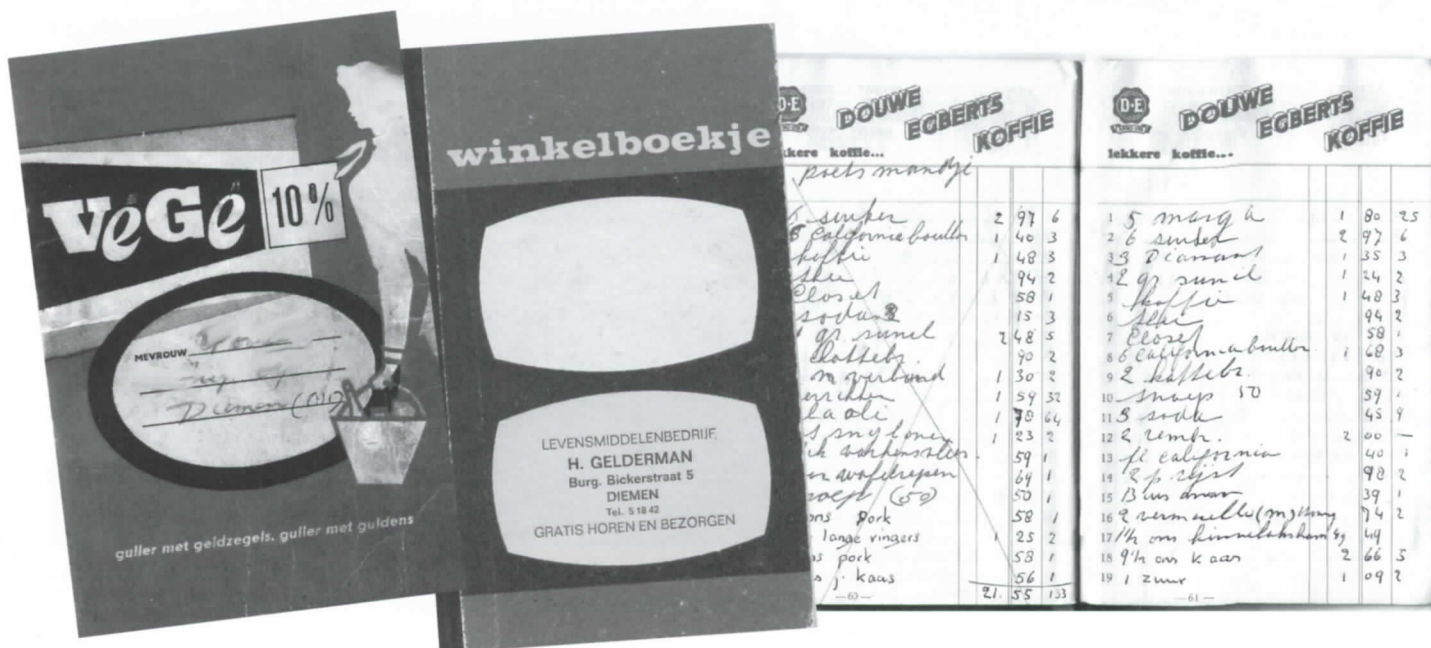 VéGé 10%
MEVROUW
Diemen
guller met geldzegels, guller met guldens
winkelboekje
LEVENSMIDDELENBEDRIJF
H. GELDERMAN
Burg. Bickerstraat 5
DIEMEN
Tel. 5 18 42
GRATIS HOREN EN BEZORGEN
D·E DOUWE EGBERTS KOFFIE
kkere koffie...
poets mandje
suiker 2 97 6
Californie bouillon 1 40 3
koffie 1 48 3
94 2
Closet 58 1
soda 15 3
gr. sunil 2 48 5
90 2
m verband 1 30 2
1 59 32
1 78 64
1 23 2
59 1
wafelrepen 69 1
(50) 50 1
ons pork 58 1
lange vingers 1 25 2
s pork 58 1
s j. kaas 56 1
21. 55 133
—60—
D·E DOUWE EGBERTS KOFFIE
lekkere koffie...
1 5 marga 1 80 25
2 6 suiker 2 97 6
3 3 Diamant 1 35 3
4 2 gr sunil 1 24 2
5 koffie 1 48 3
6 94 2
7 Closet 58 1
8 6 California bouillon 1 68 3
9 2 90 2
10 snoep 50 59 1
11 3 soda 45 9
12 2 rembr. 2 00 —
13 fl california 40 1
14 2 p rijst 98 2
15 39 1
16 2 vermicelle (m) 74 2
17 1½ ons 49
18 9½ ons kaas 2 66 5
19 1 zuur 1 09 2
—61—